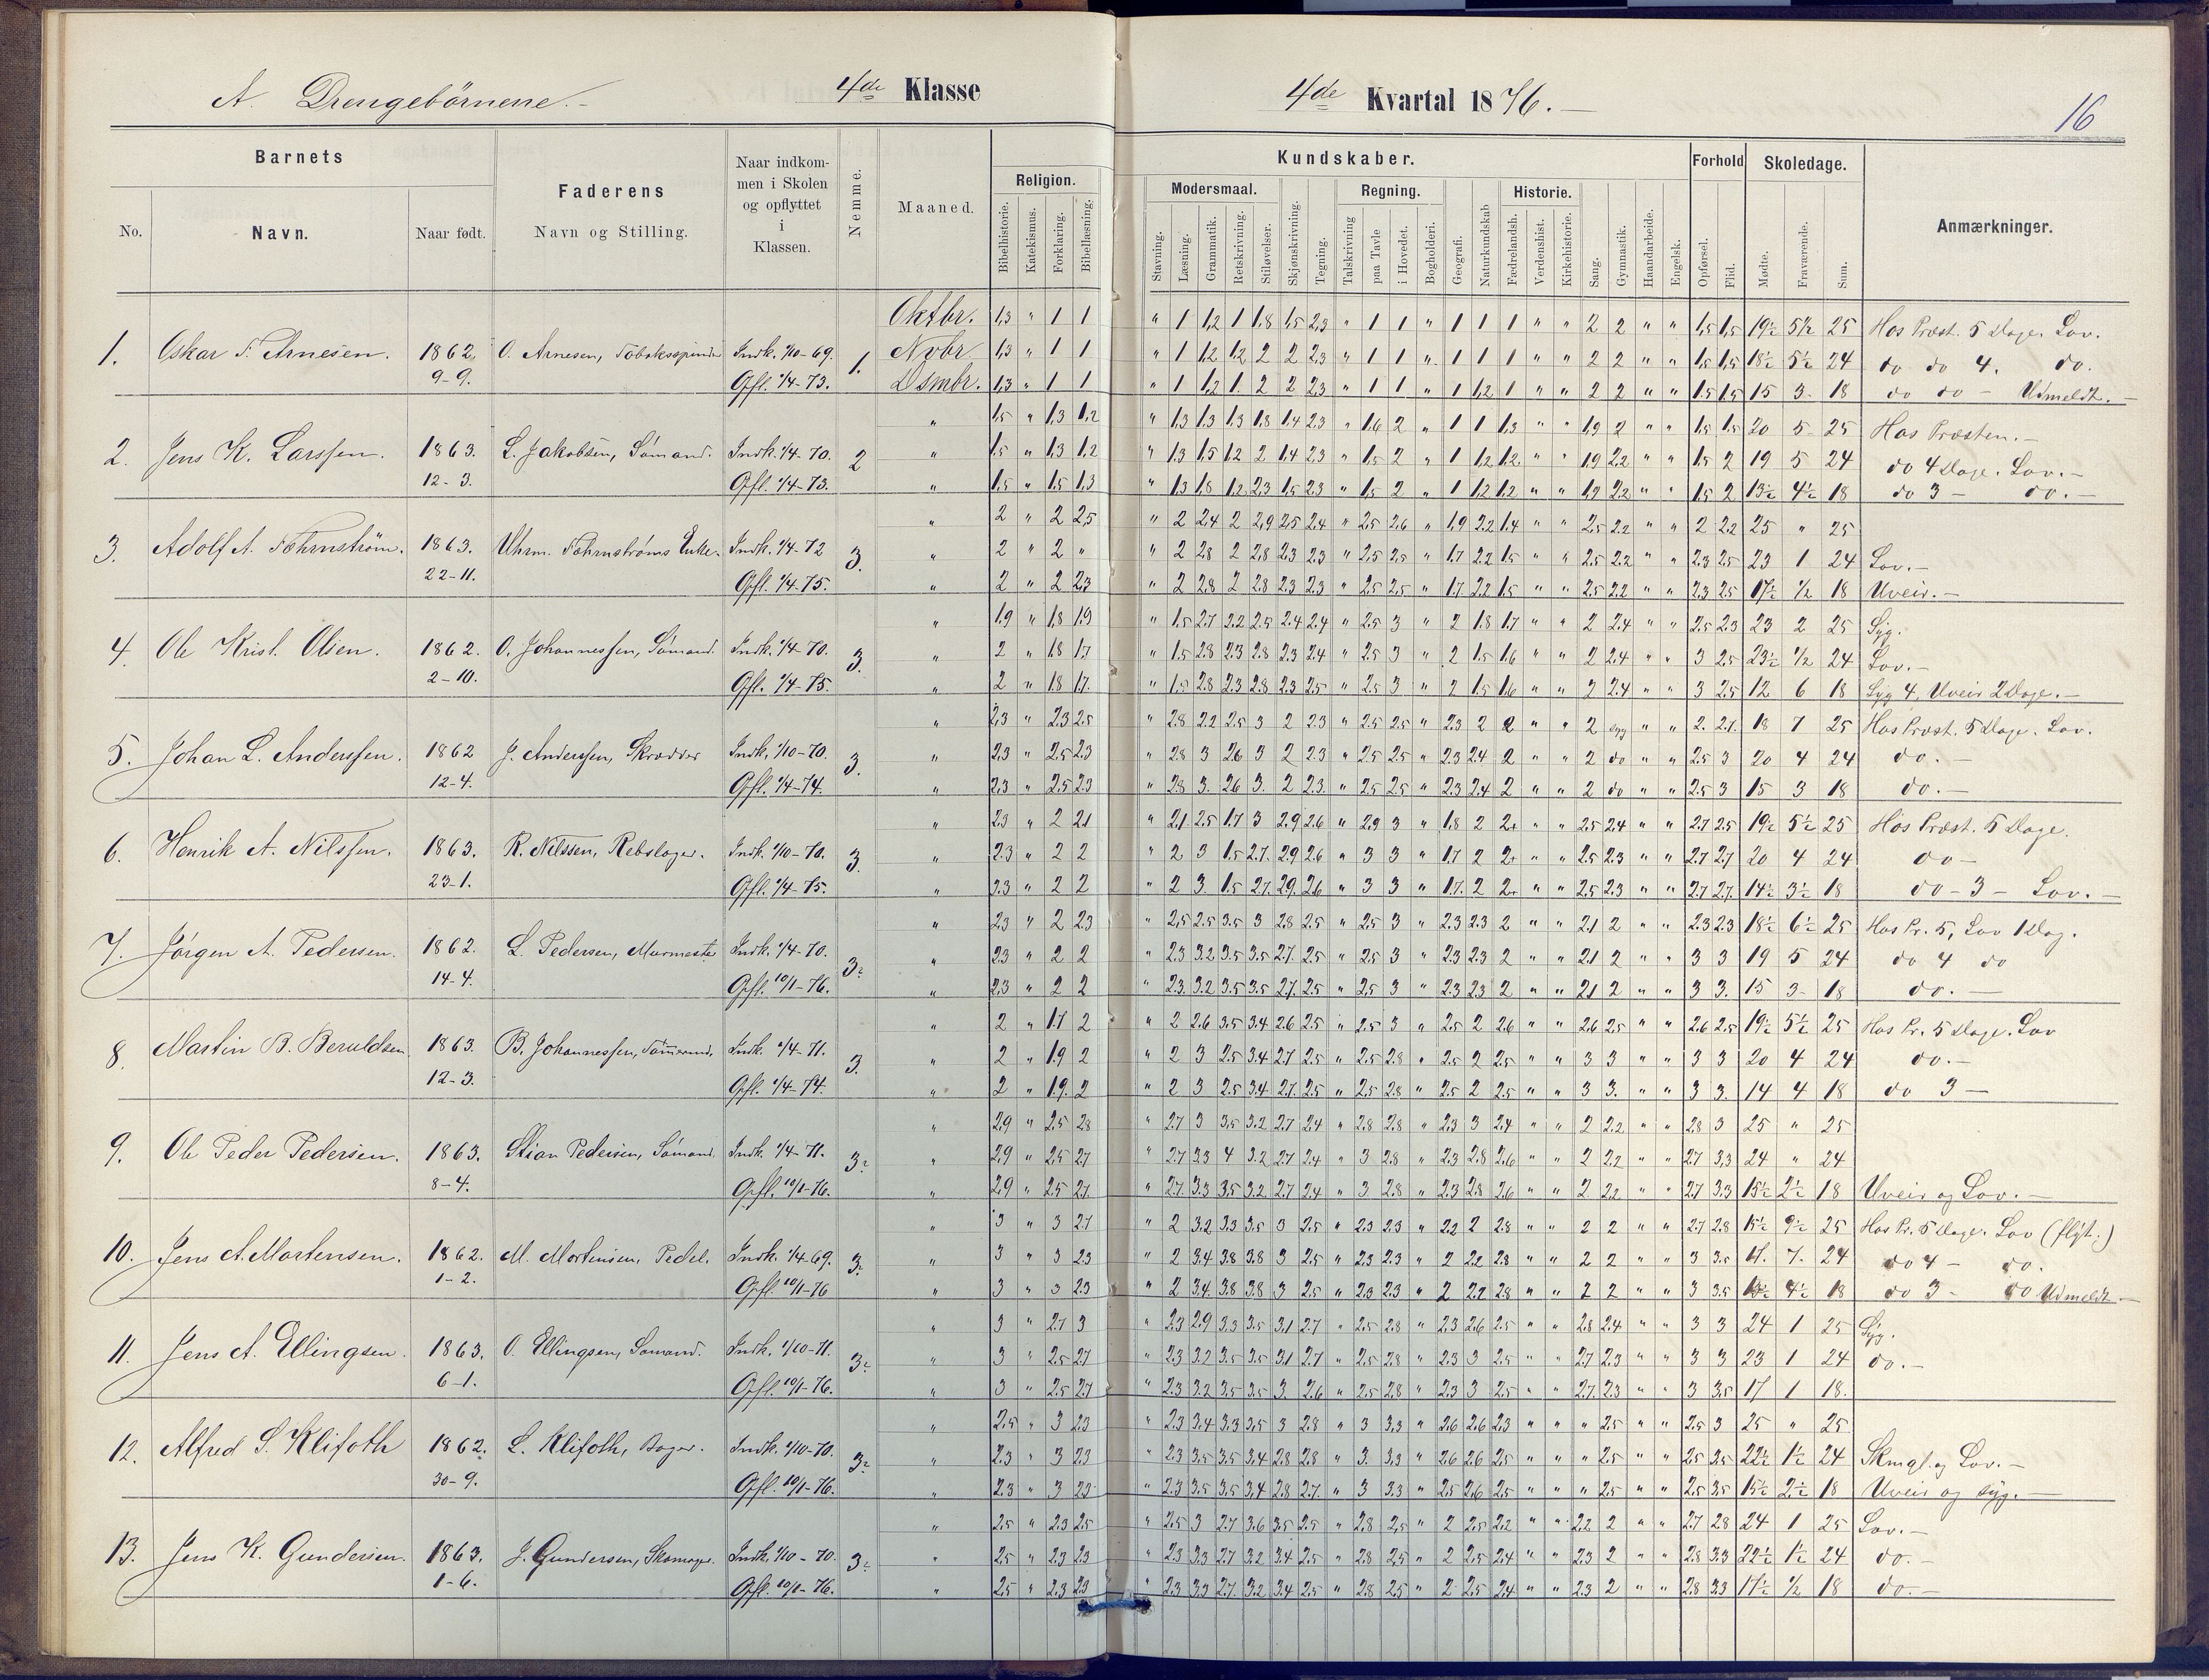 A. Drengebörnene.- 4de Klasse
4de Kvartal 1876.-
16
Barnets
No.
Navn.
Naar født.
Faderens
Navn og Stilling.
Naar indkom-
men i Skolen
og opflyttet
i
Klassen.
Nemme.
Maaned.
Kundskaber.
Religion.
Bibelhistorie.
Katekismus.
Forklaring.
Bibellæsning.
Modersmaal.
Stavning.
Læsning.
Grammatik.
Retskrivning.
Stiløvelser.
Skjønskrivning.
Tegning.
Regning.
Talskrivning
paa Tavle
i Hovedet.
Bogholderi.
Geografi.
Naturkundskab
Historie.
Fædrelandsh.
Verdenshist.
Kirkehistorie.
Sang.
Gymnastik.
Haandarbeide.
Engelsk.
Forhold
Opførsel.
Flid.
Skoledage.
Mødte.
Fraværende.
Sum.
Anmærkninger.
1. Oskar F. Arnesen. 1862. 9-9. O. Arnesen, Indk. 1/10-69. Opfl. 1/4-73. 1.
Oktbr. 1,3 " 1 1 " 1 1,2 1 1,8 1,5 2,3 " 1 1 " 1 1 1 " " 2 2 " " 1,5 1,5 19½ 5½ 25 Hos Præst. 5 Dage. Lov.
Nvbr. 1,3 " 1 1 " 1 1,2 1,2 2 2 2,3 " 1 1 " 1 1 1 " " 2 2 " " 1,5 1,5 18½ 5½ 24 do do 4. do.
Dsmbr. 1,3 " 1 1 " 1 1,2 1 2 2 2,3 " 1 1 " 1 1,2 1 " " 2 2 " " 1,5 1,5 15 3 18 do do - Udmeldt.-
2. Jens K. Larssen. 1863. 12-3. L. Jakobsen, Sömand. Indk. 1/4-70. Opfl. 1/4-73. 2
" 1,5 " 1,3 1,2 " 1,3 1,3 1,3 1,8 1,4 2,3 " 1,6 2 " 1 1 1,3 " " 1,9 2 " " 1,5 1,5 20 5 25 Hos Præsten.-
" 1,5 " 1,3 1,2 " 1,3 1,5 1,2 2 1,4 2,3 " 1,5 2 " 1 1,2 1,2 " " 1,9 2,2 " " 1,5 2 19 5 24 do 4 Dage. Lov.-
" 1,5 " 1,5 1,3 " 1,3 1,8 1,2 2,3 1,5 2,3 " 1,5 2 " 1 1,2 1,2 " " 1,9 2,2 " " 1,5 2 13½ 4½ 18 do 3 - do.-
3. Adolf A. 1863. 22-11. Uhrm. Enke. Indk. 1/4-72 Opfl. 1/4-75. 3.
" 2 " 2 2,5 " 2 2,4 2 2,9 2,5 2,4 " 2,5 2,6 " 1,9 2,2 1,4 " " 2,5 2,2 " " 2 2,2 25 " 25
" 2 " 2 " " 2 2,8 2 2,8 2,3 2,3 " 2,5 2,5 " 1,7 2,2 1,5 " " 2,5 2,2 " " 2,3 2,5 23 1 24 Lov.-
" 2 " 2 2,3 " 2 2,8 2 2,8 2,3 2,3 " 2,5 2,5 " 1,7 2,2 1,5 " " 2,5 2,2 " " 2,3 2,5 17½ ½ 18 Uveir.-
4. Ole Krist. Olsen. 1862. 2-10. O. Johannessen, Sömand. Indk. 1/4-70. Opfl. 1/4-75. 3.
" 1,9 " 1,8 1,9 " 1,5 2,7 2,2 2,5 2,4 2,4 " 2,5 3 " 2 1,8 1,7 " " 2 2,4 " " 2,5 2,3 23 2 25 Syg.
" 2 " 1,8 1,7 " 1,5 2,8 2,3 2,8 2,3 2,4 " 2,5 3 " 2 1,5 1,6 " " 2 2,4 " " 3 2,5 23½ ½ 24 Lov.-
" 2 " 1,8 1,7 " 1,5 2,8 2,3 2,8 2,3 2,5 " 2,5 3 " 2 1,5 1,6 " " 2 2,4 " " 3 2,5 12 6 18 Syg 4, Uveir 2 Dage.-
5. Johan L. Anderssen. 1862 12-4. J. Anderssen, Skrædder Indk. 1/10-70. Opfl. 1/4-74. 3.
" 2,3 " 2,3 2,5 " 2,8 2,2 2,5 3 2 2,3 " 2,5 2,5 " 2,3 2 2 " " 2 syg " " 2 2,7 18 7 25 Hos Præst. 5 Dage. Lov.
" 2,3 " 2,5 2,3 " 2,8 3 2,6 3 2 2,3 " 2,5 2,5 " 2,3 2,4 2 " " 2 do " " 2,5 3 20 4 24 do.-
" 2,3 " 2,5 2,3 " 2,8 3 2,6 3 2 2,3 " 2,5 2,5 " 2,3 2,4 2 " " 2 do " " 2,5 3 15 3 18 do.-
6. Henrik A. Nilssen. 1863. 23-1. R. Nilssen, Rebslager. Indk. 1/10-70. Opfl. 1/4-75. 3.
" 2,3 " 2 2,1 " 2,1 2,5 1,7 3 2,9 2,6 " 2,9 3 " 1,8 2 2+ " " 2,5 2,4 " " 2,7 2,5 19½ 5½ 25 Hos Præst. 5 Dage.
" 2,3 " 2 2 " 2 3 1,5 2,7 2,9 2,6 " 3 3 " 1,7 2 2+ " " 2,5 2,3 " " 2,7 2,7 20 4 24 do-
" 2,3 " 2 2 " 2 3 1,5 2,7 2,9 2,6 " 3 3 " 1,7 2 2+ " " 2,5 2,3 " " 2,7 2,7 14½ 3½ 18 do-3- Lov.-
7. Jörgen A. Pedersen. 1862. 14-4. L. Pedersen, Murmester Indk. 1/4-70. Opfl. 10/1-76. 3-
" 2,3 " 2 2,3 " 2,5 2,5 3,5 3 2,8 2,5 " 2,5 3 " 2,3 2,3 2 " " 2,1 2 " " 2,3 2,3 18½ 6½ 25 Hos Pr. 5, Lov 1 Dag.
" 2,3 " 2 2 " 2,3 3,2 3,5 3,5 2,7 2,5 " 2,5 3 " 2,3 2,3 2 " " 2,1 2 " " 3 3 19 5 24 do 4 do
" 2,3 " 2 2 " 2,3 3,2 3,5 3,5 2,7 2,5 " 2,5 3 " 2,3 2,3 2 " " 2,1 2 " " 3 3 15 3 18 do.-
8. Martin B. Beruldsen 1863. 12-3. B. Johannessen, Tömmermd. Indk. 1/4-71. Opfl. 1/4-74. 3.
" 2 " 1,7 2 " 2 2,6 3,5 3,4 2,6 2,5 " 2,5 3 " 2,5 2 2,6 " " 2,6 2,5 " " 2,6 2,5 19½ 5½ 25 Hos Pr. 5 Dage. Lov
" 2 " 1,9 2 " 2 3 2,5 3,4 2,7 2,5 " 2,5 2,8 " 2,5 2 2,5 " " 3 3 " " 3 3 20 4 24 do.-
" 2 " 1,9 2 " 2 3 2,5 3,4 2,7 2,5 " 2,5 2,8 " 2,5 2 2,5 " " 3 3 " " 3 3 14 4 18 do 3-
9. Ole Peder Pedersen. 1863. 8-4. Stian Pedersen, Sömand. Indk. 1/4-71. Opfl. 10/1-76. 3-
" 2,9 " 2,5 2,8 " 2,7 3 3,5 3,2 2,7 2,4 " 2,8 2,8 " 2,3 3 2,4 " " 2 2,2 " " 2,8 3 25 " 25
" 2,9 " 2,5 2,7 " 2,7 3,3 4 3,2 2,7 2,4 " 3 2,8 " 2,3 2,8 2,6 " " 2 2,2 " " 2,7 3,3 24 " 24
" 2,9 " 2,5 2,7 " 2,7 3,3 3,5 3,2 2,7 2,4 " 3 2,8 " 2,3 2,8 2,6 " " 2 2,2 " " 2,7 3,3 15½ 2½ 18 Uveir og Lov.-
10. Jens A. Mortensen. 1862. 1-2. M. Mortensen, Pedel. Indk. 1/4-69. Opfl. 10/1-76 3-
" 3 " 3 2,7 " 2 3,2 3,3 3,5 3 2,5 " 2,3 2,3 " 2,2 2 2,8 " " 2 2 " " 2,7 2,8 15½ 9½ 25 Hos Pr. 5 Dage. Lov (flyt.)
" 3 " 3 2,3 " 2 3,4 3,8 3,8 3 2,5 " 2,3 2,3 " 2 2,2 2,8 " " 2 2 " " 3 3,5 17. 7. 24 do 4 - do.
" 3 " 3 2,3 " 2 3,4 3,8 3,8 3 2,5 " 2,3 2,3 " 2 2,2 2,8 " " 2 2 " " 3 3,5 13½ 4½ 18 do 3- do Udmeldt.-
11. Jens A. Ellingsen. 1863. 6-1. O. Ellingsen, Sömand. Indk. 1/10-71. Opfl. 10/1-76. 3-
" 3 " 2,7 3 " 2,3 2,9 3,3 3,5 3,1 2,7 " 2,5 2,8 " 2,3 2,6 2,5 " " 2,8 2,4 " " 3 3 24 1 25 Syg.
" 3 " 2,5 2,7 " 2,3 3,2 3,5 3,5 3,1 2,7 " 2,5 2,8 " 2,3 3 2,5 " " 2,7 2,3 " " 3 3 23 1 24 do.-
" 3 " 2,5 2,7 " 2,3 3,2 3,5 3,5 3 2,6 " 2,5 2,8 " 2,3 3 2,5 " " 2,7 2,3 " " 3 3,5 17 1 18.
12. Alfred S. Klifoth 1862. 30-9. L. Klifoth, Bager. Indk. 1/10-70. Opfl. 10/1-76. 3-
" 2,5 " 3 2,3 " 2,3 3,4 3,3 3,5 3 2,8 " 3 3,3 " 2,6 2,6 2,3 " " " 2,5 " " 2,5 3 25 " 25
" 2,3 " 3 2,3 " 2,3 3,5 3,5 3,4 2,8 2,8 " 3 3,3 " 2,6 2,6 2,5 " " " 2,5 " " 2,5 3,5 22½ 1½ 24 Skmgl. og Lov.-
" 2,3 " 3 2,3 " 2,3 3,5 3,5 3,4 2,8 2,7 " 3 3,3 " 2,5 2,6 2,5 " " " 2,5 " " 2,5 3,5 15½ 2½ 18 Uveir og syg.-
13. Jens K. Gundersen. 1863. 1-6. J. Gundersen, Skomager. Indk. 1/10-70. Opfl. 10/1-76. 3-
" 2,5 " 2,3 2,5 " 2,5 3 2,7 3,6 3,5 2,5 " 2,8 2,5 " 2 2,5 2,2 " " 2,2 2 " " 2,7 2,8 24 1 25 Lov.-
" 2,5 " 2,3 2,3 " 2,3 3,3 2,7 3,2 3,4 2,5 " 2,8 2,5 " 2 2,5 2,4 " " 2,3 2 " " 2,8 3,3 22½ 1½ 24 do.-
" 2,5 " 2,3 2,3 " 2,3 3,3 2,7 3,2 3,4 2,5 " 2,8 2,5 " 2 2,5 2,4 " " 2,3 2 " " 2,8 3,3 17½ ½ 18 do.-